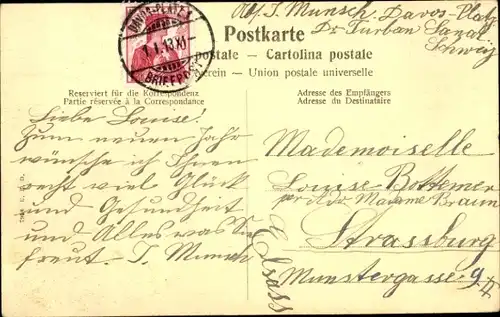 Abs. J. Munsch. Davos-Platz
Dr Turban Sanat.
Schweiz
DAVOS-PLATZ
1.I.13.XI
BRIEFPOST
Postkarte
postale – Cartolina postale
verein - Union postale universelle
Reserviert für die Korrespondenz
Partie réservée à la Correspondance
Adresse des Empfängers
Adresse du Destinataire
Liebe Louise!
Zum neuen Jahr
wünsche ich Ihnen
recht viel Glück
und Gesundheit
und Alles was Sie
freut. J. Munsch
Mademoiselle
Louise Bottemer
per Adr. Madame Braun
Strassburg
Münstergasse 9
Elsass